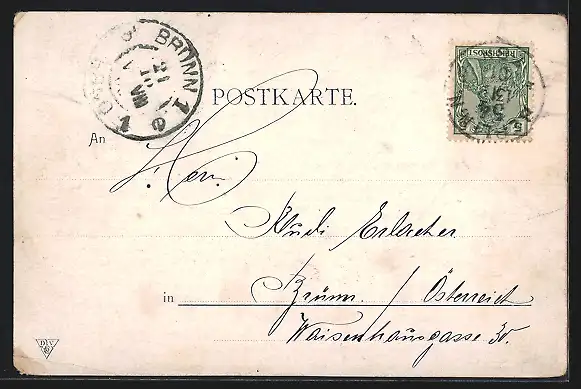 BRÜNN 1
POSTKARTE.
REICHSPOST
5
An
Herrn
Rudi Erlacher
in Brünn. / Österreich
Waisenhausgasse 30.